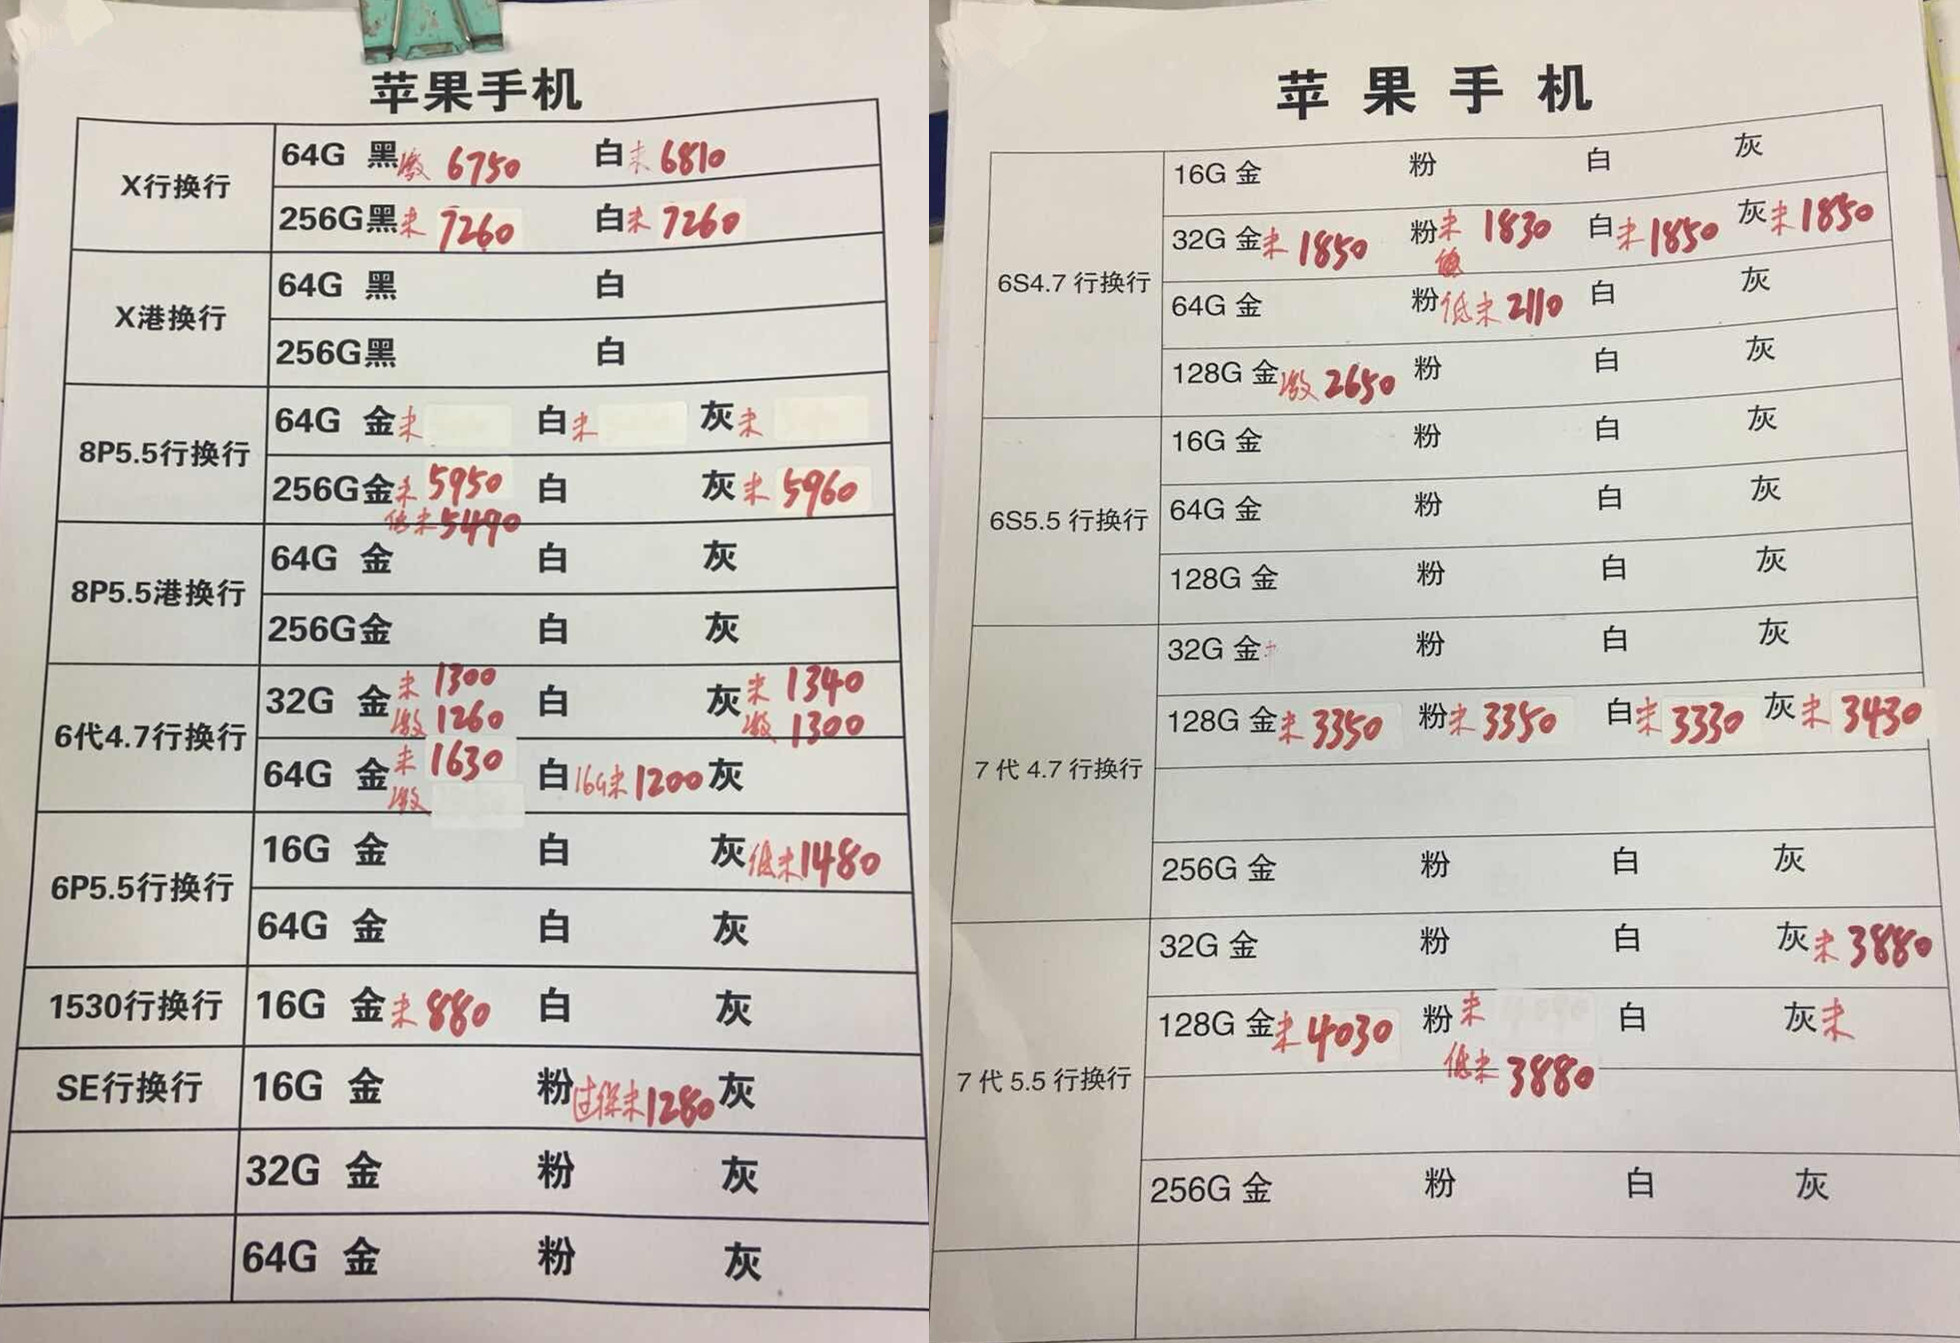 苹果手机
X行换行
64G 黑激 6750 白未 6810
256G黑未 7260 白未 7260
X港换行
64G 黑 白
256G黑 白
8P5.5行换行
64G 金未 白未 灰未
256G金未 5950 白 灰未 5960
低未5490
8P5.5港换行
64G 金 白 灰
256G金 白 灰
6代4.7行换行
32G 金未 1300 白 灰未 1340
激 1260 激 1300
64G 金未 1630 白16G未1200 灰
激
6P5.5行换行
16G 金 白 灰低未1480
64G 金 白 灰
1530行换行
16G 金未 880 白 灰
SE行换行
16G 金 粉过保未1280 灰
32G 金 粉 灰
64G 金 粉 灰
苹果手机
6S4.7 行换行
16G 金 粉 白 灰
32G 金未 1850 粉未 1830 白未1850 灰未1850
64G 金 粉低未2110 白 灰
128G 金激 2650 粉 白 灰
6S5.5 行换行
16G 金 粉 白 灰
64G 金 粉 白 灰
128G 金 粉 白 灰
7代 4.7 行换行
32G 金 粉 白 灰
128G 金未 3350 粉未 3350 白未 3330 灰未 3430
256G 金 粉 白 灰
7代 5.5 行换行
32G 金 粉 白 灰未 3880
128G 金未 4030 粉未 白 灰未
低未 3880
256G 金 粉 白 灰